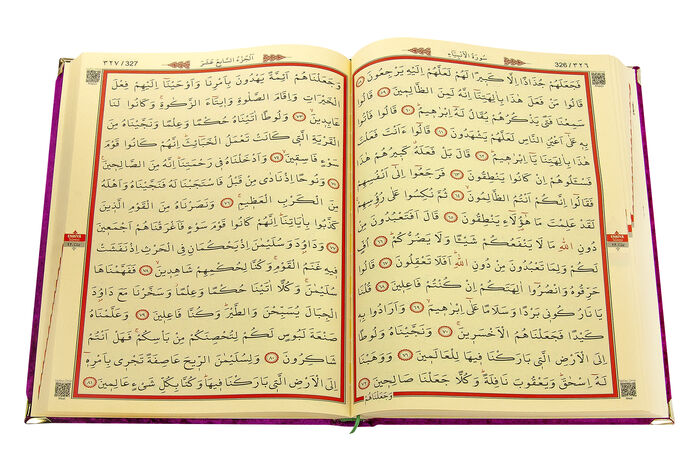 سُورَةُ الْاَنْبِيَاءِ 326 / ٣٢٦
فَجَعَلَهُمْ جُذَاذًا اِلَّا كَب۪يرًا لَهُمْ لَعَلَّهُمْ اِلَيْهِ يَرْجِعُونَ ﴿٥٨﴾
قَالُوا مَنْ فَعَلَ هٰذَا بِاٰلِهَتِنَٓا اِنَّهُ لَمِنَ الظَّالِم۪ينَ ﴿٥٩﴾ قَالُوا
سَمِعْنَا فَتًى يَذْكُرُهُمْ يُقَالُ لَهُٓ اِبْرٰه۪يمُ ﴿٦٠﴾ قَالُوا فَأْتُوا
بِه۪ عَلٰٓى اَعْيُنِ النَّاسِ لَعَلَّهُمْ يَشْهَدُونَ ﴿٦١﴾ قَالُٓوا ءَاَنْتَ فَعَلْتَ
هٰذَا بِاٰلِهَتِنَا يَٓا اِبْرٰه۪يمُ ﴿٦٢﴾ قَالَ بَلْ فَعَلَهُ كَب۪يرُهُمْ هٰذَا
فَسْـَٔلُوهُمْ اِنْ كَانُوا يَنْطِقُونَ ﴿٦٣﴾ فَرَجَعُٓوا اِلٰٓى اَنْفُسِهِمْ
فَقَالُٓوا اِنَّكُمْ اَنْتُمُ الظَّالِمُونَ ﴿٦٤﴾ ثُمَّ نُكِسُوا عَلٰى رُؤُسِهِمْ
لَقَدْ عَلِمْتَ مَا هٰٓؤُلَٓاءِ يَنْطِقُونَ ﴿٦٥﴾ قَالَ اَفَتَعْبُدُونَ مِنْ
دُونِ اللّٰهِ مَا لَا يَنْفَعُكُمْ شَيْـًٔا وَلَا يَضُرُّكُمْ ﴿٦٦﴾ اُفٍّ
لَكُمْ وَلِمَا تَعْبُدُونَ مِنْ دُونِ اللّٰهِ اَفَلَا تَعْقِلُونَ ﴿٦٧﴾ قَالُوا
حَرِّقُوهُ وَانْصُرُٓوا اٰلِهَتَكُمْ اِنْ كُنْتُمْ فَاعِل۪ينَ ﴿٦٨﴾ قُلْنَا
يَا نَارُ كُون۪ي بَرْدًا وَسَلَامًا عَلٰٓى اِبْرٰه۪يمَ ﴿٦٩﴾ وَاَرَادُوا بِه۪
كَيْدًا فَجَعَلْنَاهُمُ الْاَخْسَر۪ينَ ﴿٧٠﴾ وَنَجَّيْنَاهُ وَلُوطًا
اِلَى الْاَرْضِ الَّت۪ي بَارَكْنَا ف۪يهَا لِلْعَالَم۪ينَ ﴿٧١﴾ وَوَهَبْنَا
لَهُٓ اِسْحٰقَ وَيَعْقُوبَ نَافِلَةً وَكُلًّا جَعَلْنَا صَالِح۪ينَ ﴿٧٢﴾
وَجَعَلْنَاهُمْ
اَلْجُزْءُ السَّابِعَ عَشَرَ ٣٢٧ / 327
وَجَعَلْنَاهُمْ اَئِمَّةً يَهْدُونَ بِاَمْرِنَا وَاَوْحَيْنَٓا اِلَيْهِمْ فِعْلَ
الْخَيْرَاتِ وَاِقَامَ الصَّلٰوةِ وَا۪يتَٓاءَ الزَّكٰوةِ وَكَانُوا لَنَا
عَابِد۪ينَ ﴿٧٣﴾ وَلُوطًا اٰتَيْنَاهُ حُكْمًا وَعِلْمًا وَنَجَّيْنَاهُ مِنَ
الْقَرْيَةِ الَّت۪ي كَانَتْ تَعْمَلُ الْخَبَٓائِثَ اِنَّهُمْ كَانُوا قَوْمَ
سَوْءٍ فَاسِق۪ينَ ﴿٧٤﴾ وَاَدْخَلْنَاهُ ف۪ي رَحْمَتِنَا اِنَّهُ مِنَ الصَّالِح۪ينَ
﴿٧٥﴾ وَنُوحًا اِذْ نَادٰى مِنْ قَبْلُ فَاسْتَجَبْنَا لَهُ فَنَجَّيْنَاهُ وَاَهْلَهُ
مِنَ الْكَرْبِ الْعَظ۪يمِ ﴿٧٦﴾ وَنَصَرْنَاهُ مِنَ الْقَوْمِ الَّذ۪ينَ
كَذَّبُوا بِاٰيَاتِنَا اِنَّهُمْ كَانُوا قَوْمَ سَوْءٍ فَاَغْرَقْنَاهُمْ اَجْمَع۪ينَ
﴿٧٧﴾ وَدَاوُدَ وَسُلَيْمٰنَ اِذْ يَحْكُمَانِ فِي الْحَرْثِ اِذْ نَفَشَتْ
ف۪يهِ غَنَمُ الْقَوْمِ وَكُنَّا لِحُكْمِهِمْ شَاهِد۪ينَ ﴿٧٨﴾ فَفَهَّمْنَاهَا
سُلَيْمٰنَ وَكُلًّا اٰتَيْنَا حُكْمًا وَعِلْمًا وَسَخَّرْنَا مَعَ دَاوُدَ
الْجِبَالَ يُسَبِّحْنَ وَالطَّيْرَ وَكُنَّا فَاعِل۪ينَ ﴿٧٩﴾ وَعَلَّمْنَاهُ
صَنْعَةَ لَبُوسٍ لَكُمْ لِتُحْصِنَكُمْ مِنْ بَأْسِكُمْ فَهَلْ اَنْتُمْ
شَاكِرُونَ ﴿٨٠﴾ وَلِسُلَيْمٰنَ الرّ۪يحَ عَاصِفَةً تَجْر۪ي بِاَمْرِه۪ٓ
اِلَى الْاَرْضِ الَّت۪ي بَارَكْنَا ف۪يهَا وَكُنَّا بِكُلِّ شَيْءٍ عَالِم۪ينَ ﴿٨١﴾